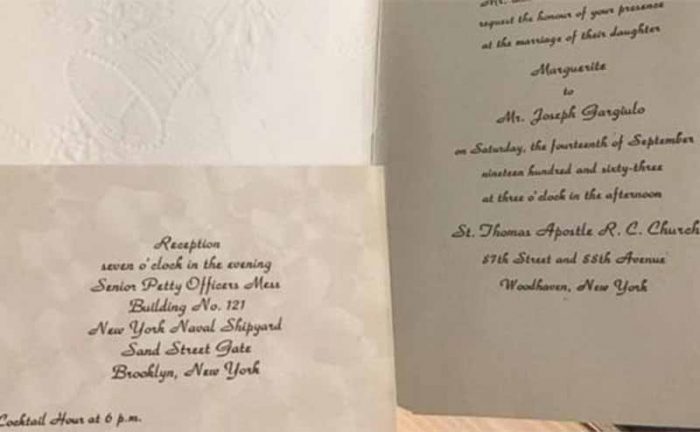 request the honour of your presence
at the marriage of their daughter
Marguerite
to
Mr. Joseph Gargiulo
on Saturday, the fourteenth of September
nineteen hundred and sixty-three
at three o'clock in the afternoon
St. Thomas Apostle R. C. Church
87th Street and 88th Avenue
Woodhaven, New York
Reception
seven o'clock in the evening
Senior Petty Officers Mess
Building No. 121
New York Naval Shipyard
Sand Street Gate
Brooklyn, New York
Cocktail Hour at 6 p.m.